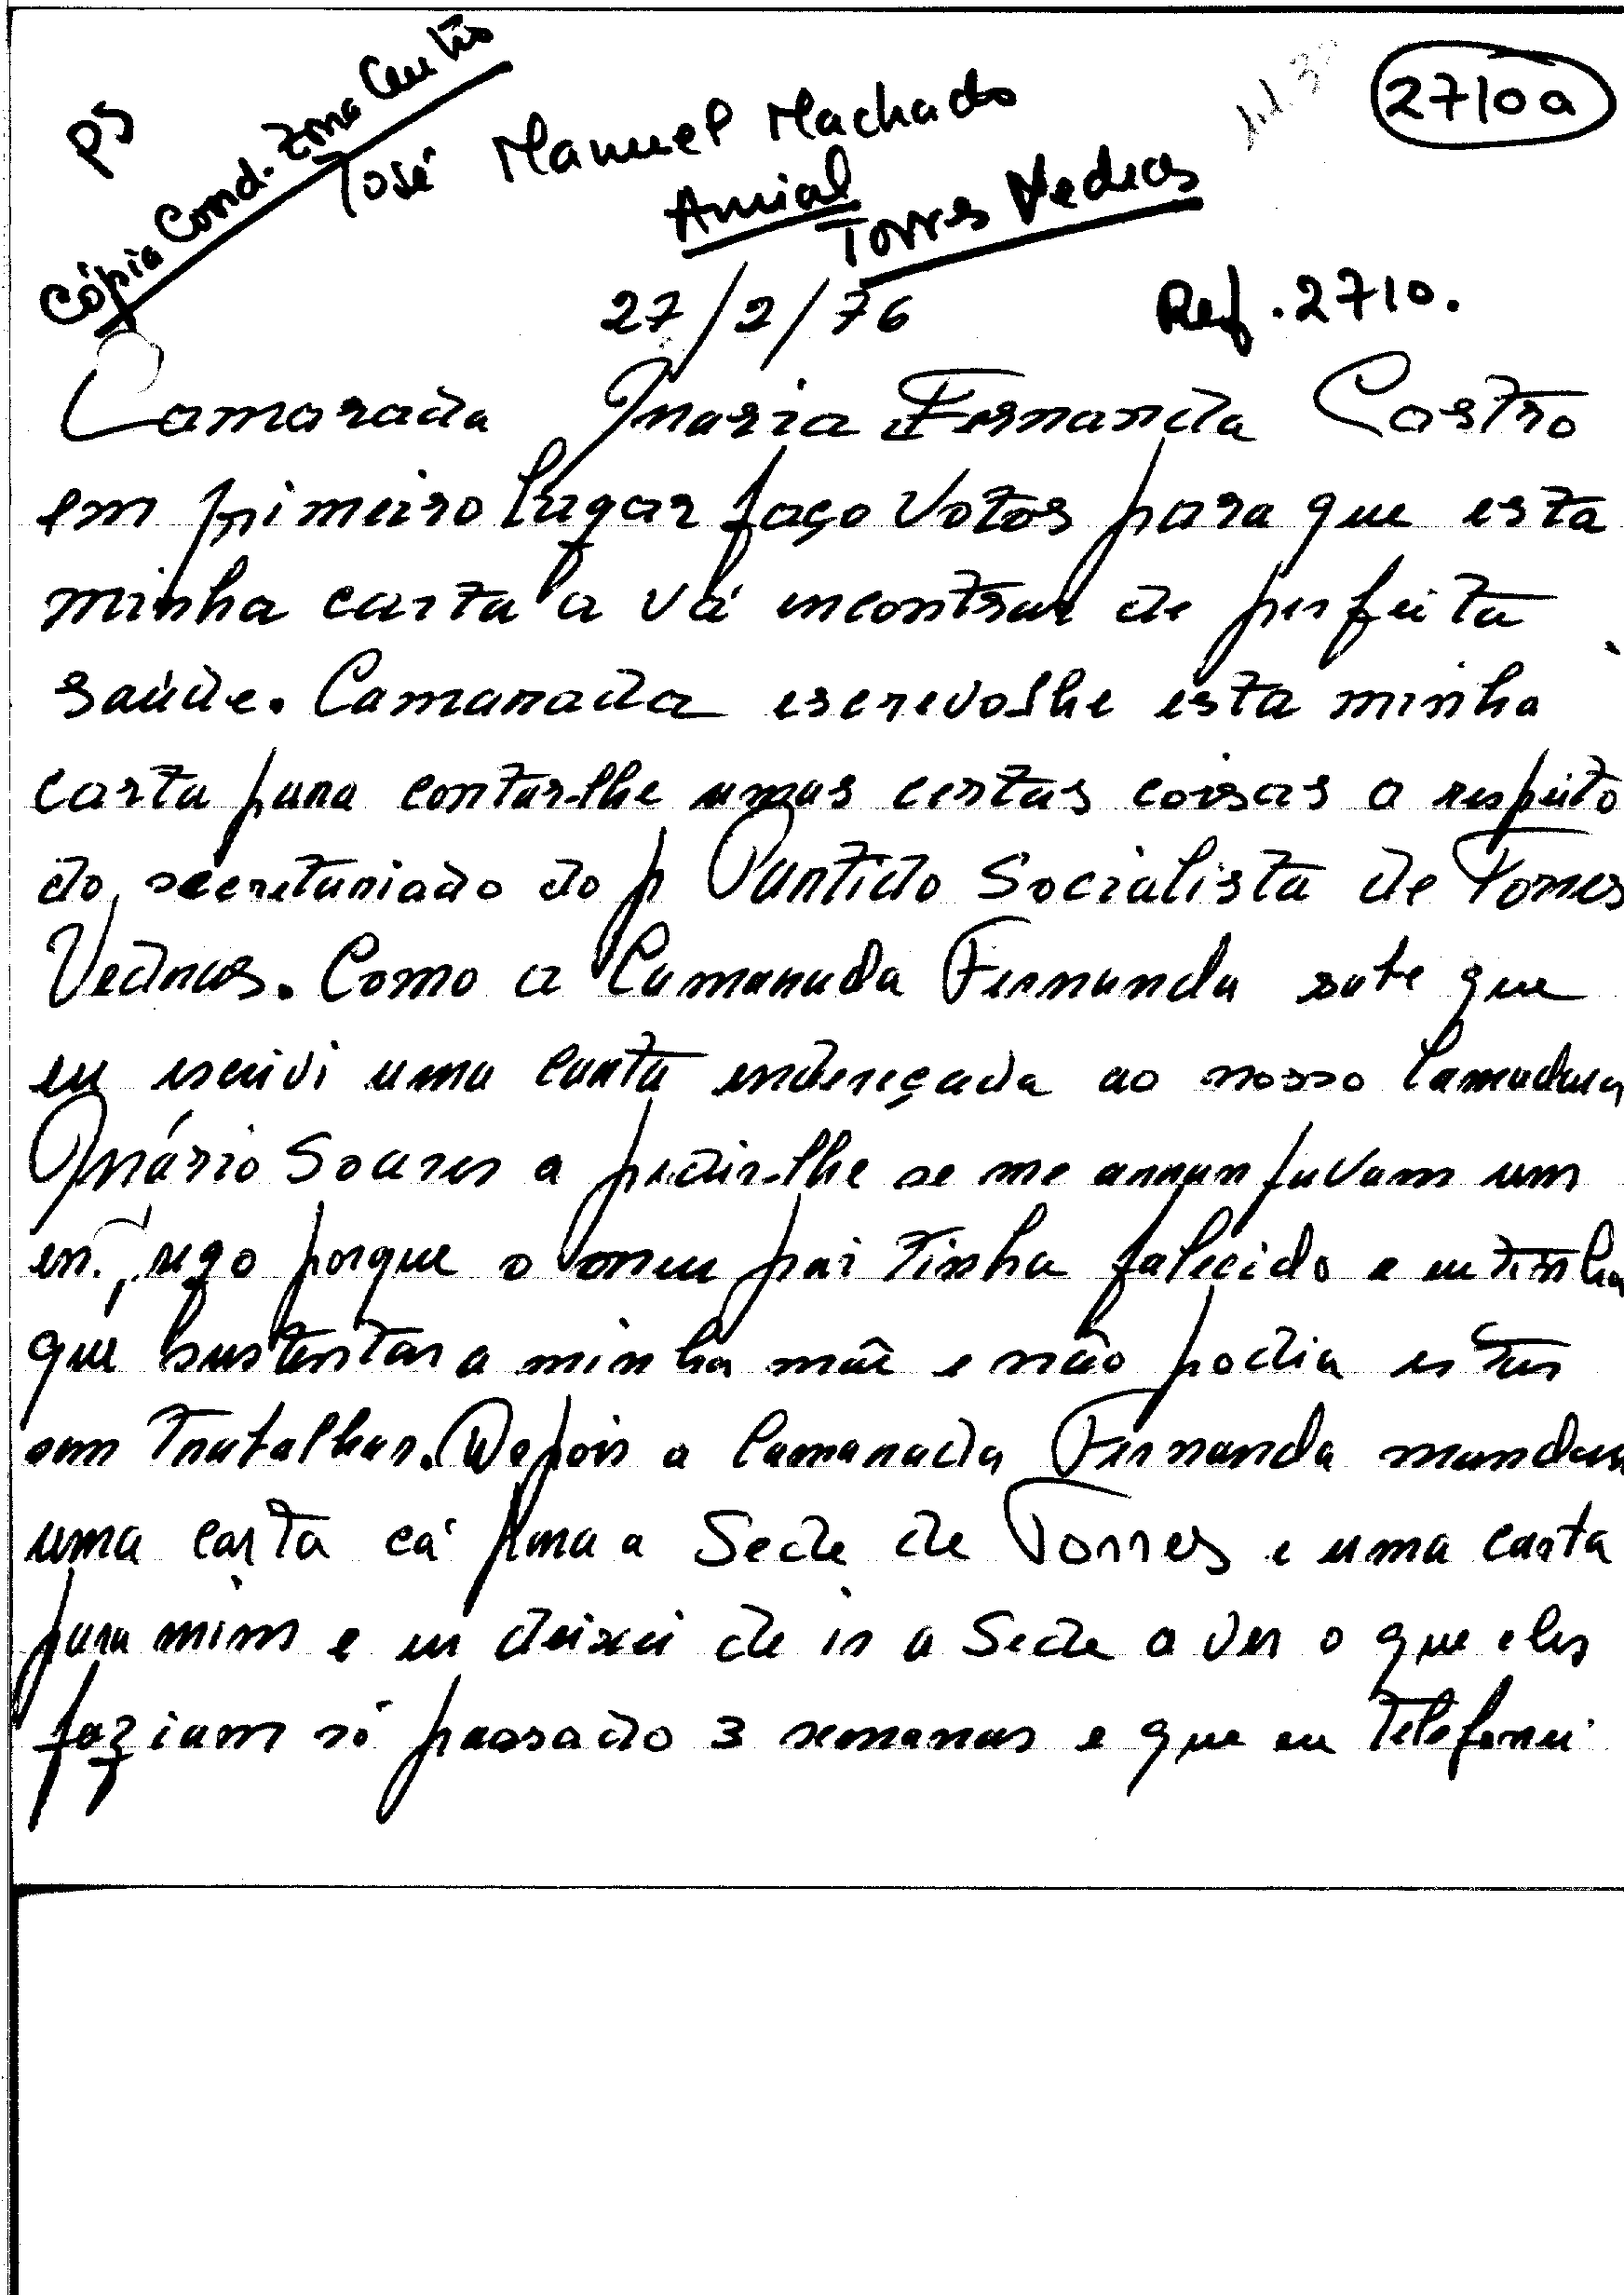 PS
Cópia Cond. Zona Centro
José Manuel Machado
Amial
Torres Vedras
2710a
27/2/76
Ref. 2710.
Camarada Maria Fernanda Castro
em primeiro lugar faço votos para que esta
minha carta a vá encontrar de perfeita
saúde. Camarada escrevo-lhe esta minha
carta para contar-lhe umas certas coisas a respeito
do secretariado do p Partido Socialista de Torres
Vedras. Como a Camarada Fernanda sabe que
eu escrivi uma carta endereçada ao nosso Camadara
Mário Soares a pedir-lhe se me arranjavam um
porque o meu pai tinha falecido e eu tinha
que sustentar a minha mãe e não podia estar
sem trabalhar. Depois a Camarada Fernanda mandou
uma carta cá para a Sede de Torres e uma carta
para mim e eu deixei de ir a Sede a ver o que eles
faziam só passado 3 semanas e que eu telefonei